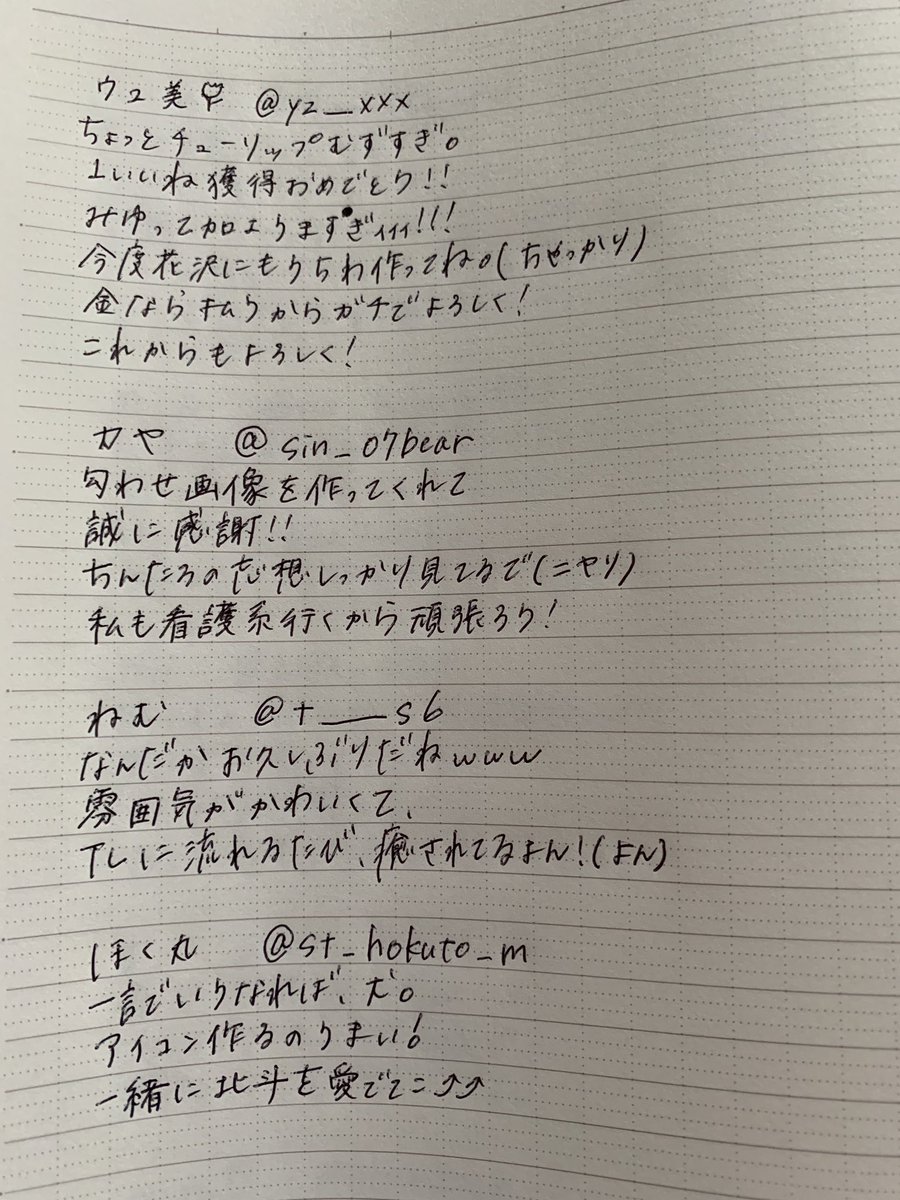 ウユ美🌷 @yz__xxx
ちょっとチューリップむずすぎ。
1いいね獲得おめでとう!!
みゆって加工うますぎィィィ!!!
今度花沢にもうちわ作ってね。(ちゃっかり)
金なら払うからガチでよろしく!
これからもよろしく!
カヤ @sin_07bear
匂わせ画像を作ってくれて
誠に感謝!!
ちんたろの恋想しっかり見てるで(ニヤリ)
私も看護系行くから頑張ろう!
ねむ @t___s6
なんだかお久しぶりだねwww
雰囲気がかわいくて、
TLに流れるたび、癒されてるよん!(よん)
ほく丸 @st_hokuto_m
一言でいうなれば、犬。
アイコン作るのうまい!
一緒に北斗を愛でてこ⤴⤴